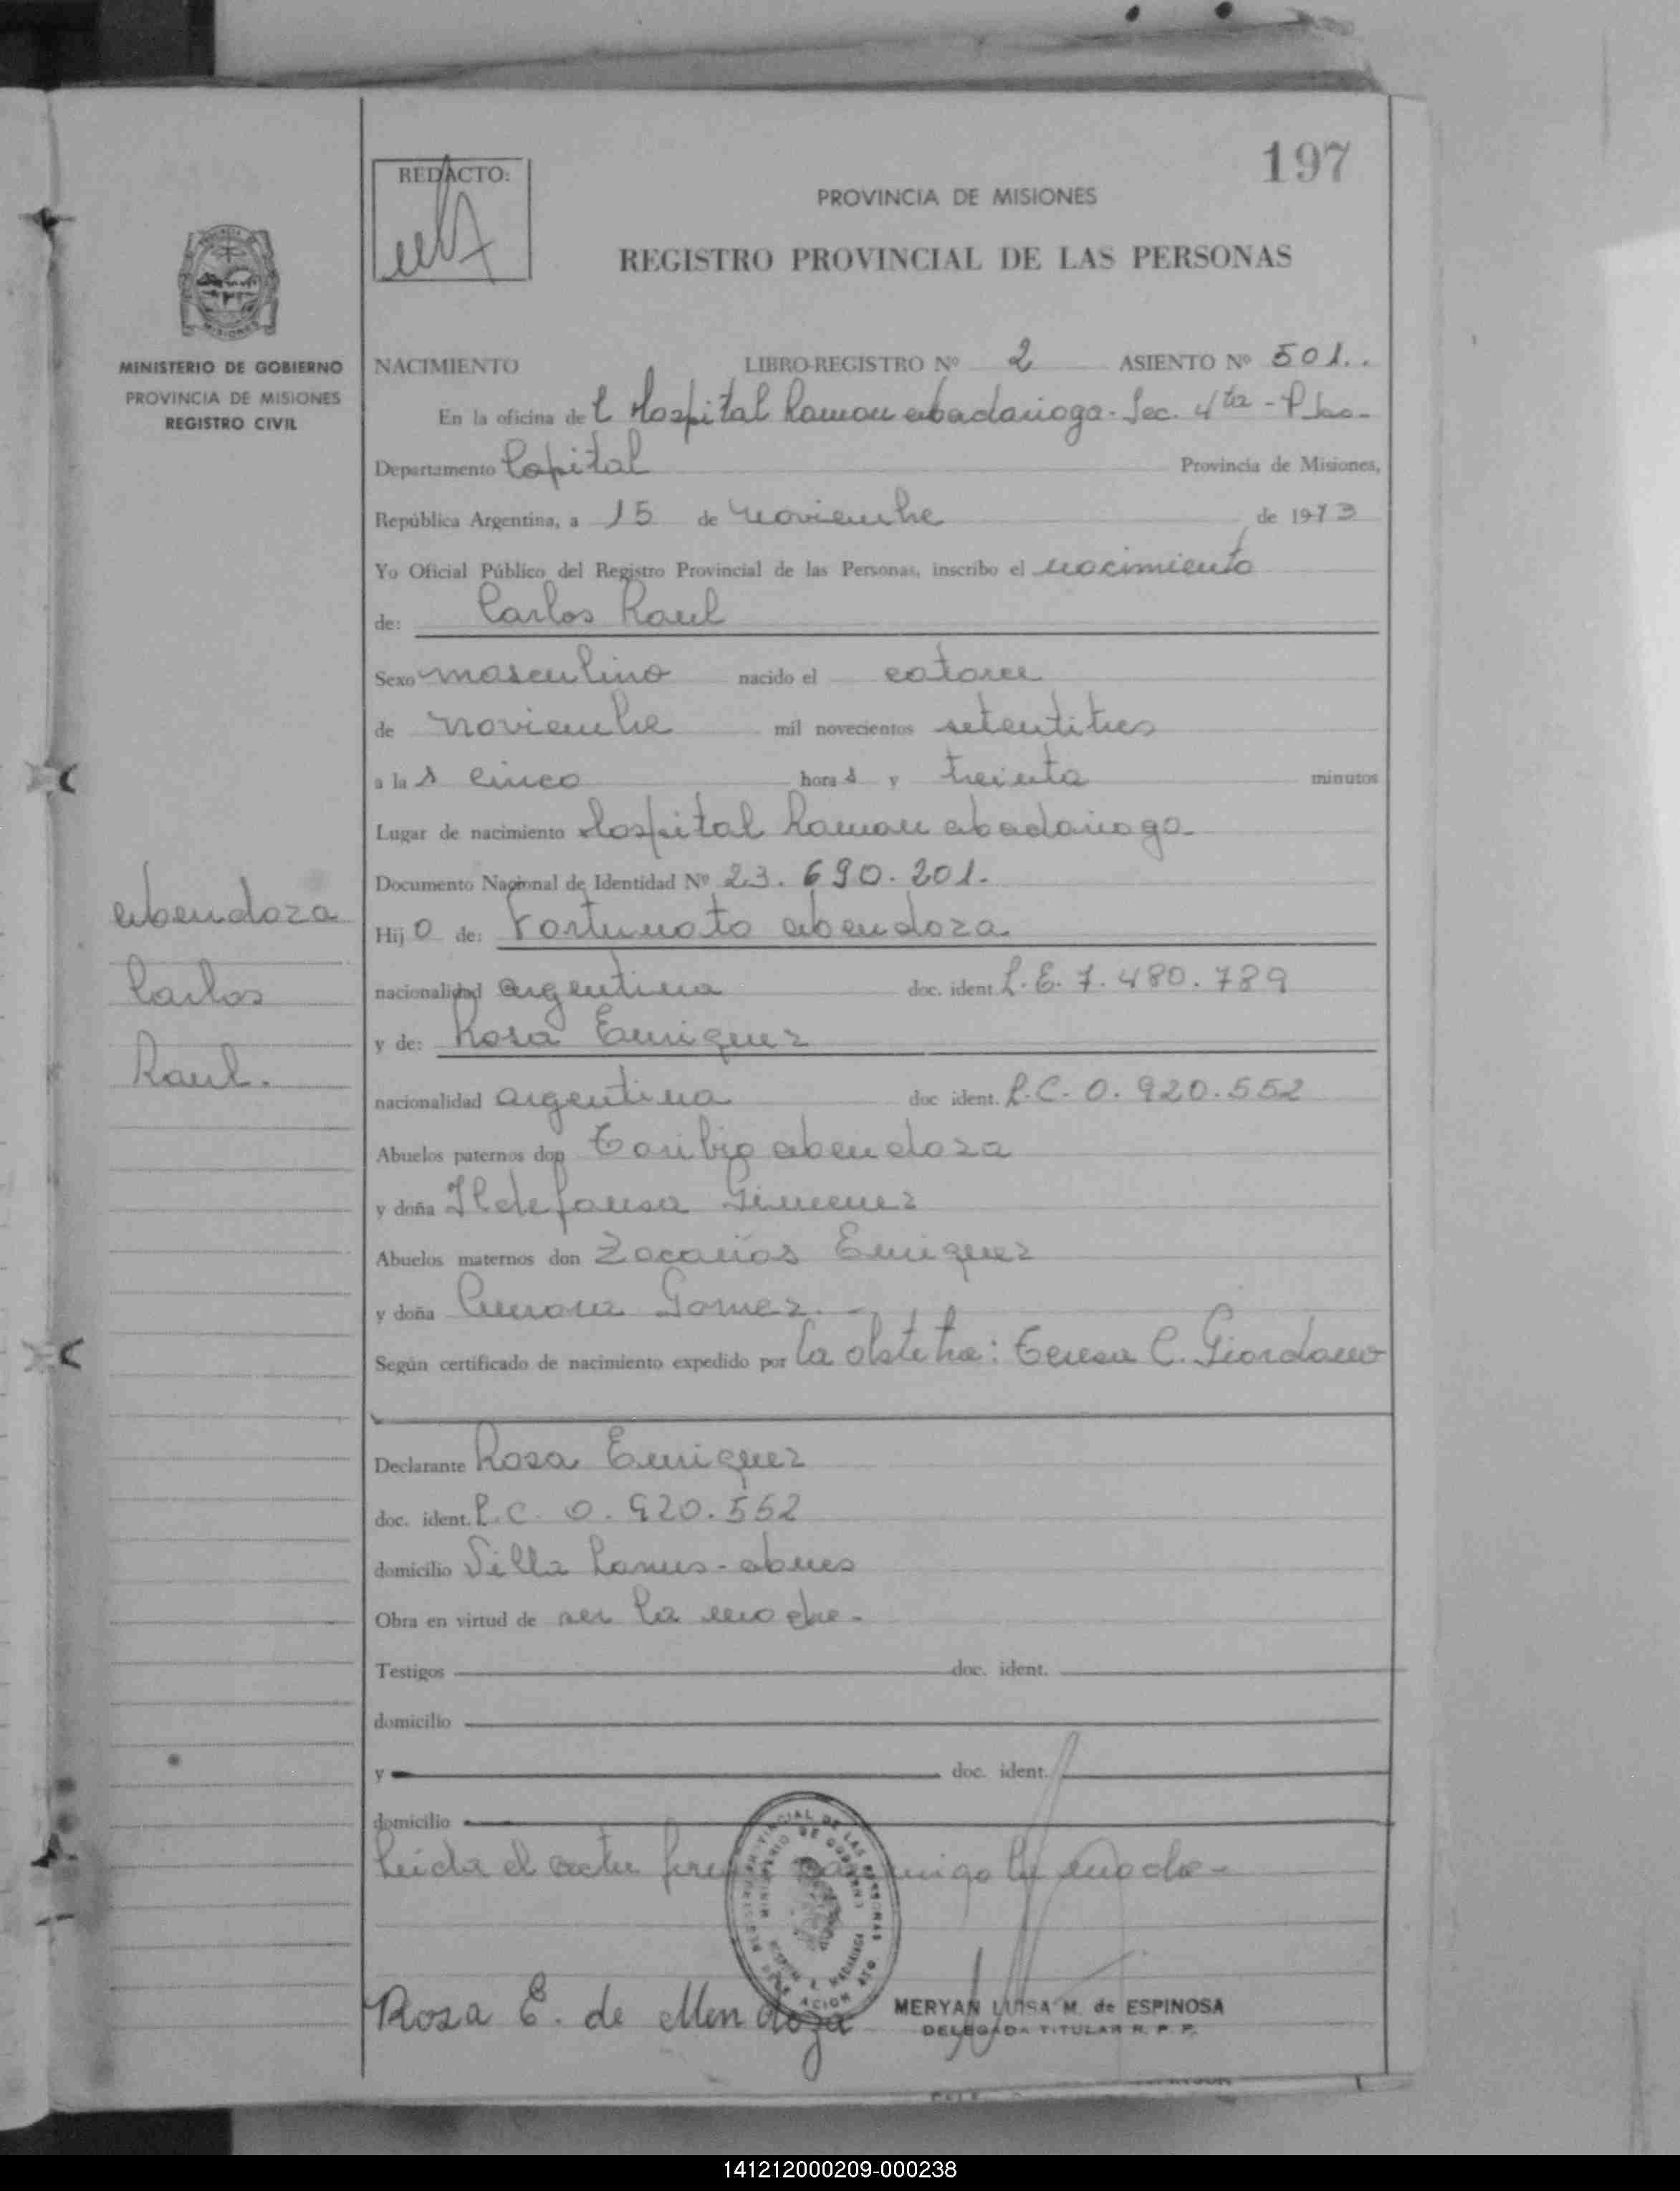 197
REDACTO:
PROVINCIA DE MISIONES
REGISTRO PROVINCIAL DE LAS PERSONAS
MINISTERIO DE GOBIERNO
PROVINCIA DE MISIONES
REGISTRO CIVIL
NACIMIENTO LIBRO-REGISTRO Nº 2 ASIENTO Nº 501..
En la oficina del Hospital Ramon Madariaga - Sec. 4ta -
Departamento Capital Provincia de Misiones,
República Argentina, a 15 de noviembre de 1973
Yo Oficial Público del Registro Provincial de las Personas, inscribo el nacimiento
de: Carlos Raul
Sexo masculino nacido el catorce
de noviembre mil novecientos setentitres
a las cinco horas y treinta minutos
Lugar de nacimiento Hospital Ramon Madariaga-
Documento Nacional de Identidad Nº 23.690.201.
Hijo de: Fortunato Mendoza
nacionalidad argentina doc. ident. L.E. 7.480.789
y de: Rosa Enriquez
nacionalidad argentina doc ident. L.C. 0.920.552
Abuelos paternos don Toribio Mendoza
y doña Ildefonsa Gimenez
Abuelos maternos don Zacarias Enriquez
y doña Gomez.-
Según certificado de nacimiento expedido por La obstetra: Teresa C. Giordano
Mendoza
Carlos
Raul.
Declarante Rosa Enriquez
doc. ident. L.C. 0.920.552
domicilio Villa Lanus - Mnes
Obra en virtud de ser la madre-
Testigos doc. ident.
domicilio
y doc. ident.
domicilio
Leida el acta la madre-
Rosa E. de Mendoza
MERYAN LUISA M. de ESPINOSA
DELEGADA TITULAR R. P. P.
141212000209-000238